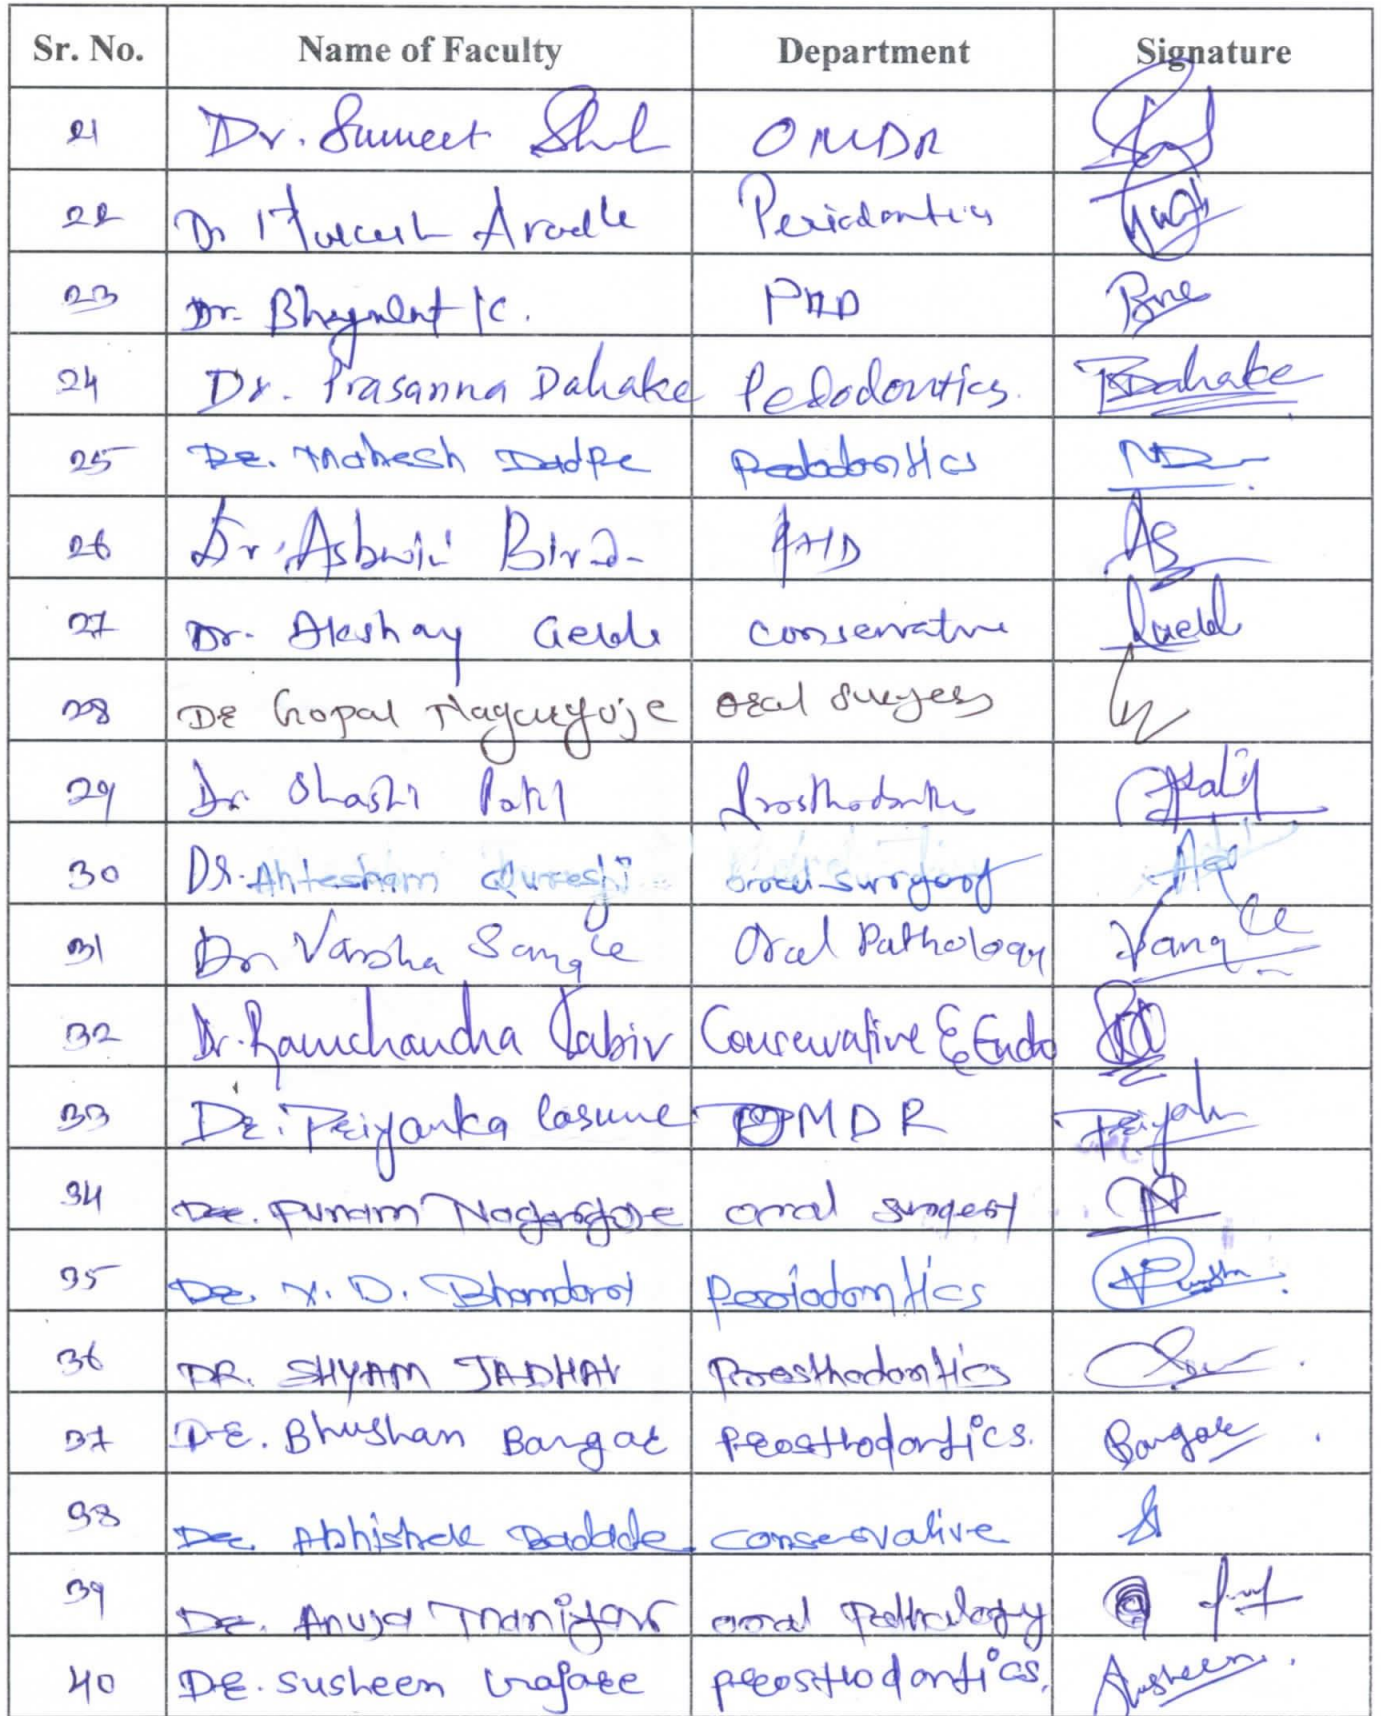 Sr. No. Name of Faculty Department Signature
21 Dr. Sumeet OMDR
22 Dr Periodontics
23 Dr. K. PHD
24 Dr. Prasanna Dahake Pedodontics. Dahake
25 Dr. Mahesh Dadpe Pedodontics
26 Dr. Ashwini PHD
27 Dr. Akshay Conservative
28 Dr Gopal Nagargoje Oral Surgery
29 Dr. Shashi Patil Prosthodontics Patil
30 Dr. Ahtesham Qureshi oral surgery
31 Dr Varsha Sangle Oral Pathology
32 Dr. Ramchandra Kabir Conservative & Endo
33 Dr. Priyanka Lasune OMDR
34 Dr. Punam Nagargoje oral surgery
35 Dr. Bhandari Periodontics
36 DR. SHYAM JADHAV Prosthodontics
37 Dr. Bhushan Bangar Prosthodontics. Bangar
38 Dr. Abhishek Badade Conservative
39 Dr. Anuja Maniyar oral Pathology
40 Dr. Susheen Gajare Prosthodontics. Susheen.